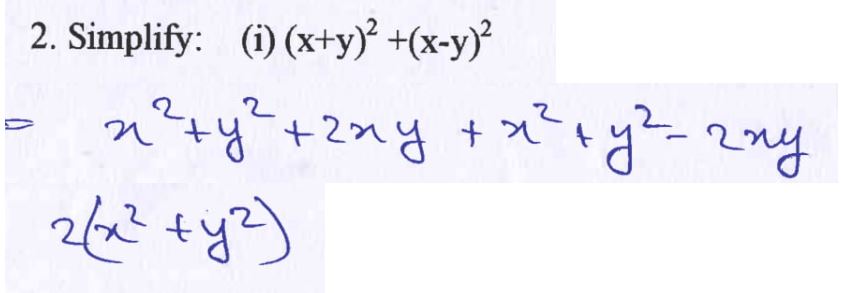 2. Simplify: (i) (x+y)² +(x-y)²
= x²+y²+2xy + x²+y²- 2xy
2(x² +y²)